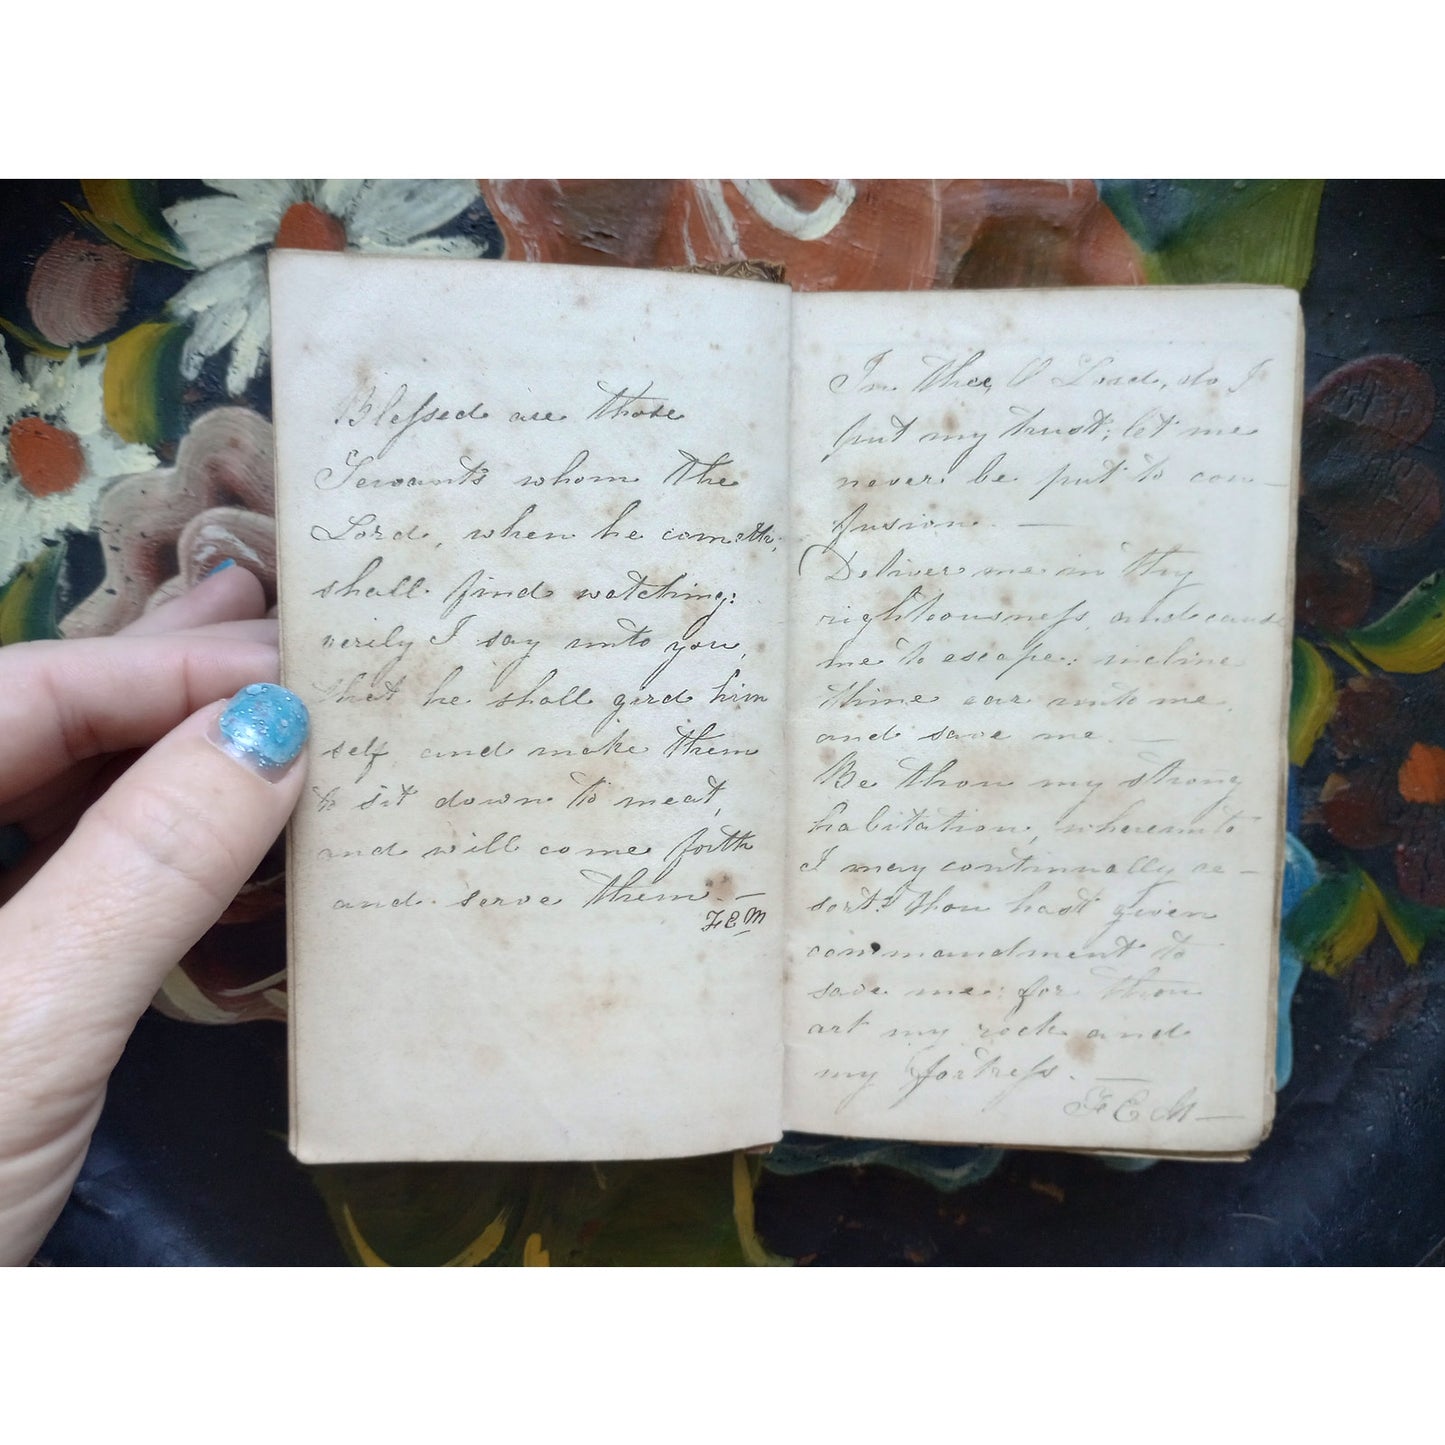 Blessed are those
Servants whom the
Lord, when he cometh;
shall find watching:
verily I say unto you,
that he shall gird him
self and make them
to sit down to meat,
and will come forth
and serve them. —
F E M
In thee, O Lord, do I
put my trust; let me
never be put to con-
fusion. —
Deliver me in thy
righteousness, and cause
me to escape: incline
thine ear unto me,
and save me. —
Be thou my strong
habitation, whereunto
I may continually re-
sort: thou hast given
commandment to
save me: for thou
art my rock and
my fortress. —
F E M —